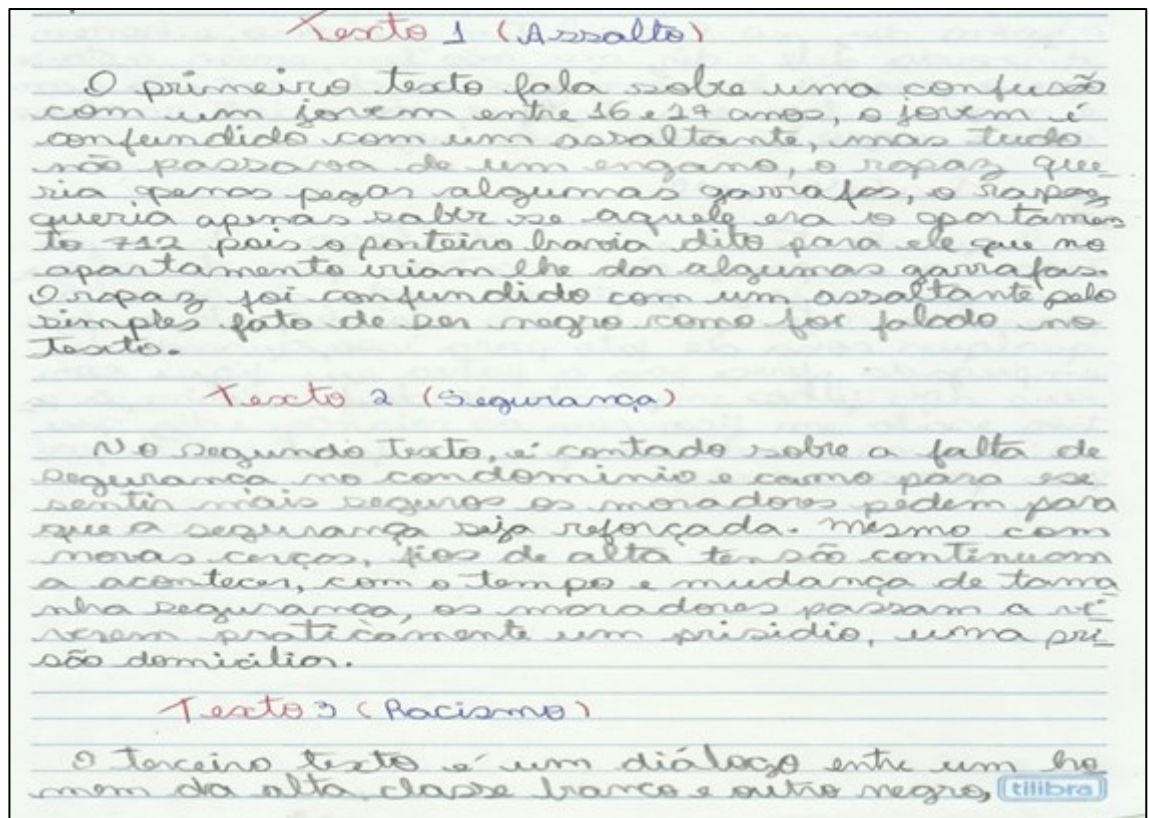 Texto 1 (Assalto)
O primeiro texto fala sobre uma confusão
com um jovem entre 16 e 17 anos, o jovem é
confundido com um assaltante, mas tudo
não passava de um engano, o rapaz que
ria apenas pegar algumas garrafas, o rapaz
queria apenas saber se aquele era o apartamen
to 712 pois o porteiro havia dito para ele que no
apartamento iriam lhe dar algumas garrafas.
O rapaz foi confundido com um assaltante pelo
simples fato de ser negro como foi falado no
texto.
Texto 2 (Segurança)
No segundo texto, é contado sobre a falta de
segurança no condominio e como para se
sentir mais seguros os moradores pedem para
que a segurança seja reforçada. Mesmo com
novas cercas, fios de alta tensão continuam
a acontecer, com o tempo e mudança de tama
nha segurança, os moradores passam a vi
verem praticamente um prisidio, uma pri
são domicilior.
Texto 3 (Racismo)
O terceiro texto é um diálogo entre um ho
mem da alta classe branco e outro negro,
tilibra